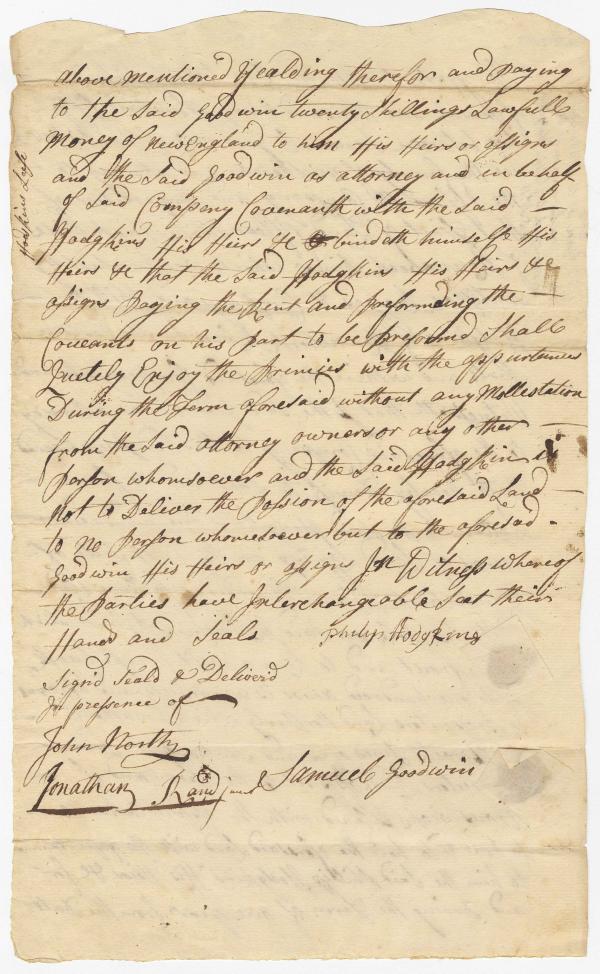 above mentioned Yealding therefor and Paying
to the Said Goodwin twenty Shillings Lawfull
Money of New England to him His Heirs or assigns
and the Said Goodwin as attorney and in behalf
of Said Compeny Covenanth with the Said —
Hodghins His Heirs &c bindeth himselfe His
Heirs &c that the Said Hodghin His Heirs &c
assigns Paying the Rent and preformding the —
Coveants on his Part to be preformd Shall
Quetely Enjoy the Primises with the appurtunces
During the Term aforesaid without any Mollestation
from the Said attorney owners or any other —
Person whomsoever and the Said Hodghin is
Not to Deliver the Possion of the aforesaid Land —
to no Person whomesoever but to the aforesad -
Goodwin His Heirs or assigns In Witness whereof
the Parties have Interchangeable Set their
Hands and Seals
Philip Hodgkins
Signd Seald & Deliverd
In presence of
John North
Jonathan Rand
Samuel Goodwin
Hodskins Lese